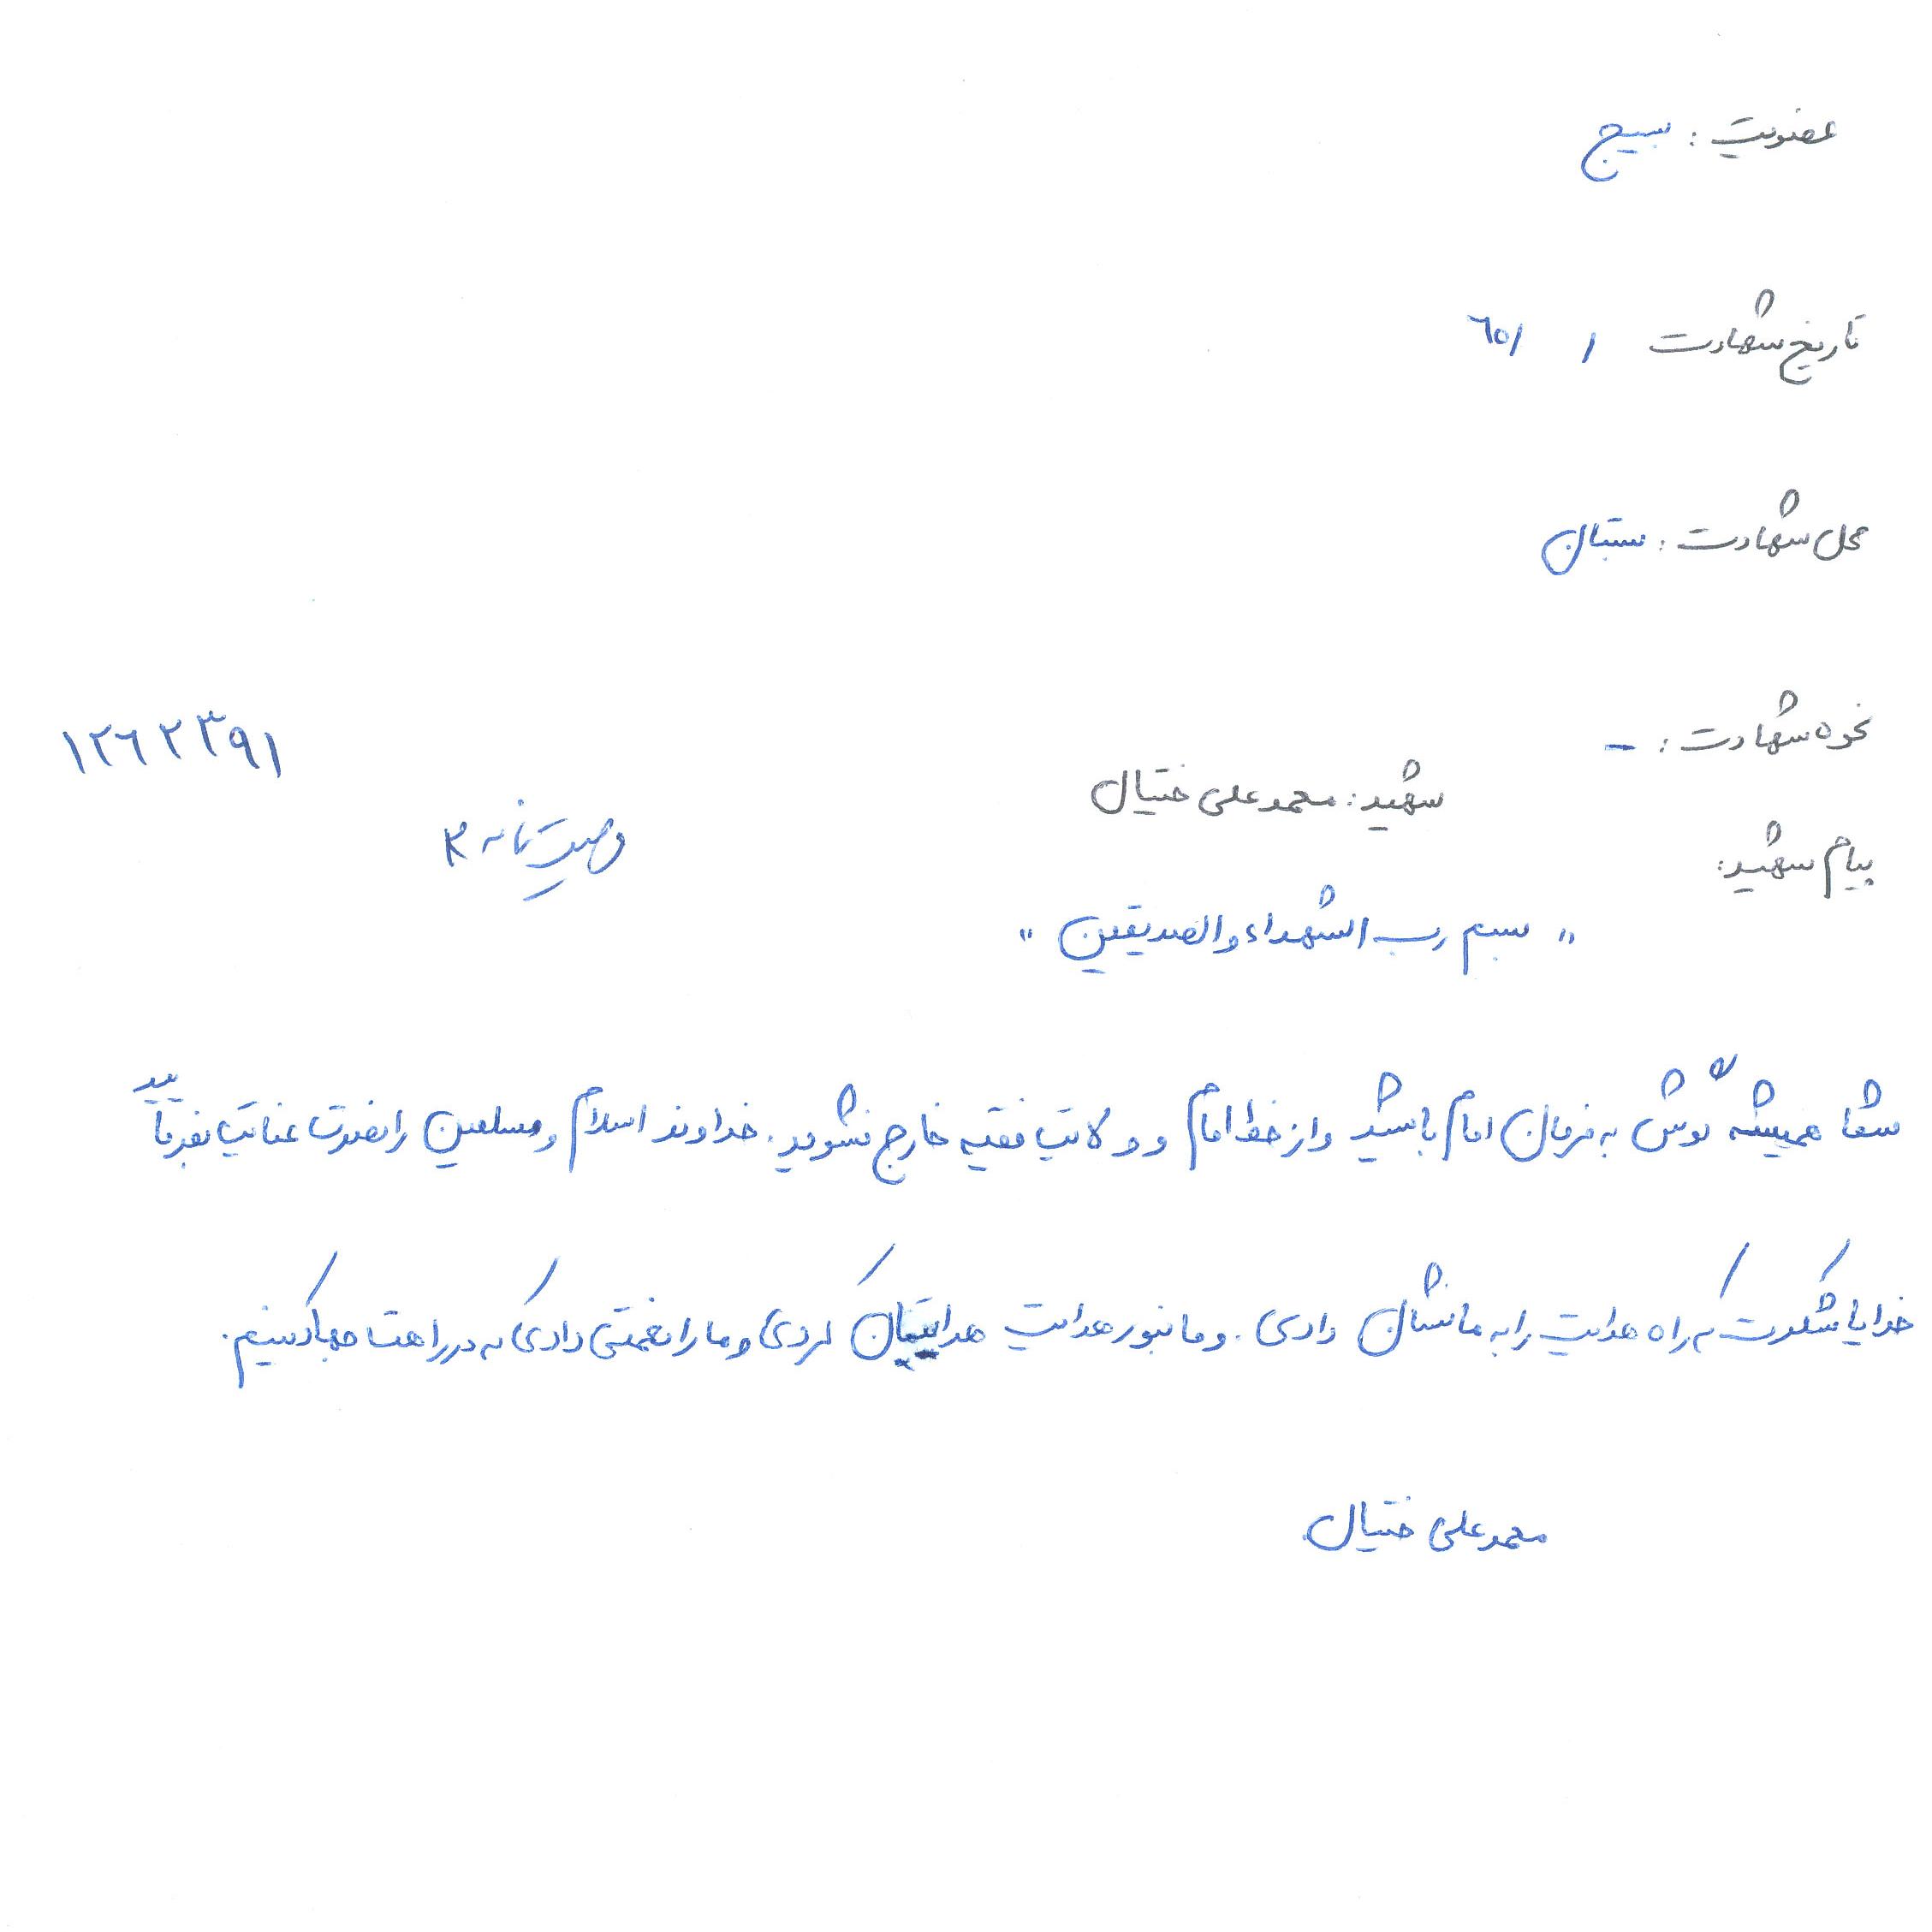 عضویت : بسیج
تاریخ شهادت / /٦٥
محل شهادت : بستان
نحوه شهادت : -
١٢٦٢٣٩١
شهید : محمد علی ختیال
وصیت نامه ٢
پیام شهید:
" بسم رب الشهداء والصدیقین "
شما همیشه گوش به فرمان امام باشید و از خط امام و ولایت فقیه خارج نشوید. خداوند اسلام و مسلمین را نصرت عنایت بفرمائید
خدایا شکرت که راه هدایت را به ما نشان دادی. و ما بنور هدایت هدایتمان کردی و ما را نعمتی دادی که در راهت جهاد کنیم.
محمد علی ختیال